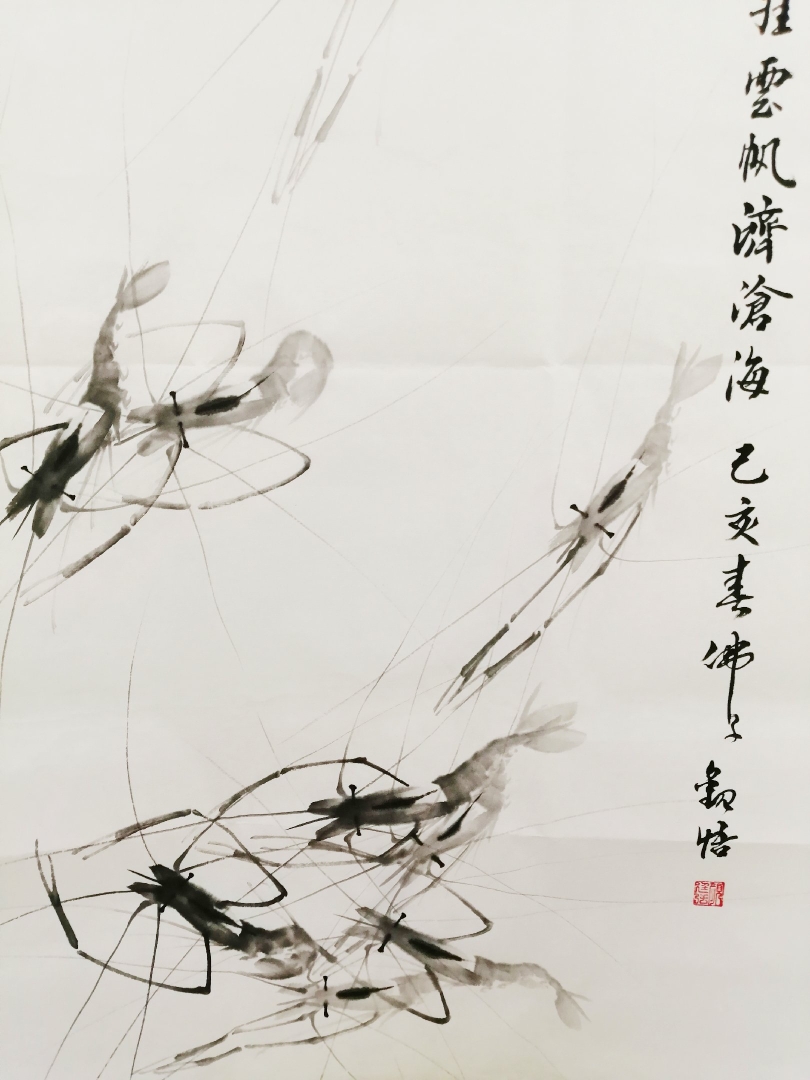 挂雲帆濟滄海 己亥春佛子 悟